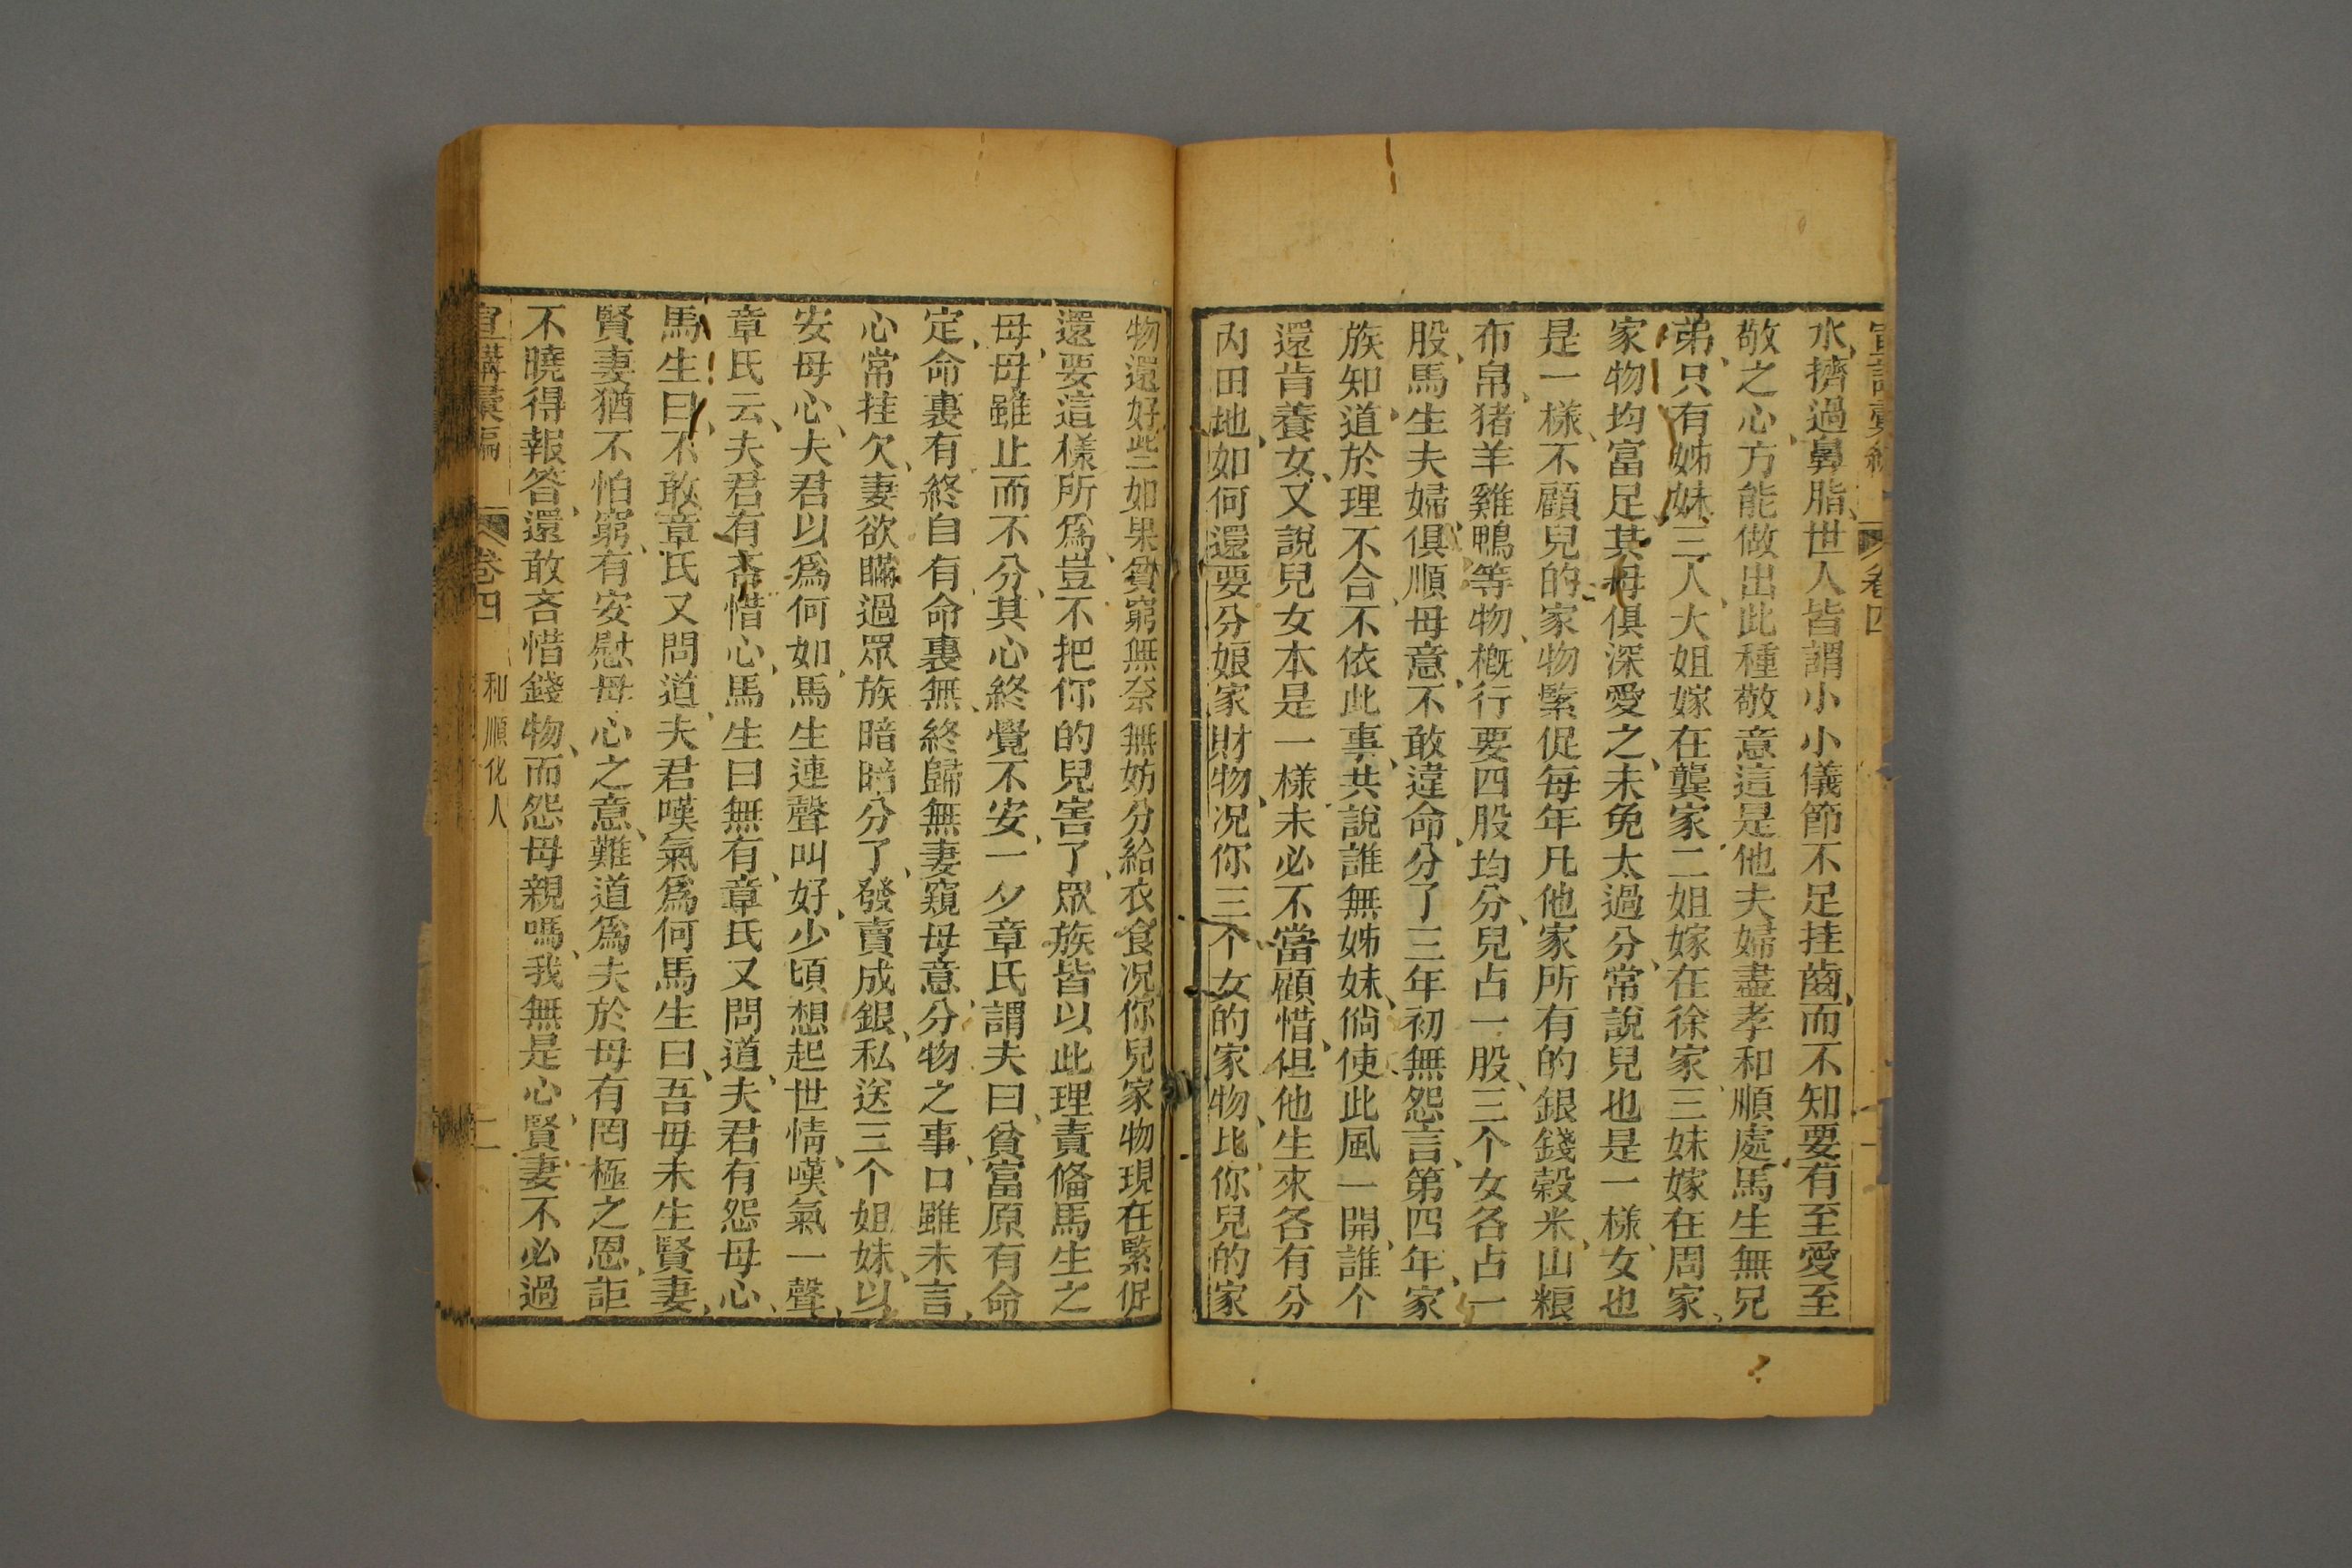 水、擠過鼻脂、世人皆謂小小儀節不足挂齒、而不知要有至愛至
敬之心、方能做出此種敬意這是他夫婦盡孝和順處、馬生無兄
弟、只有姊妹三人、大姐嫁在龔家、二姐嫁在徐家、三妹嫁在周家、
家物均富足其母俱深愛之、未免太過分、常說兒也是一樣、女也
是一樣、不顧兒的家物緊促每年凡他家所有的銀錢穀米、山粮
布帛、猪羊雞鴨等物、概行要四股均分、兒占一股、三个女各占一
股、馬生夫婦俱順母意、不敢違命、分了三年初無怨言、第四年、家
族知道、於理不合、不依此事、共說誰無姊妹、倘使此風一開、誰个
還肯養女、又說兒女本是一樣未必不當顧惜、但他生來各有分
内田地、如何還要分娘家財物、况你三个女的家物、比你兒的家
物還好些、如果貧窮無奈、無妨分給衣食、况你兒家物現在緊促
還要這樣所爲、豈不把你的兒害了、眾族皆以此理責偹馬生之
母、母雖止而不分、其心終覺不安、一夕章氏謂夫曰、貧富原有命
定、命裏有終自有、命裏無、終歸無妻窺母意、分物之事、口雖未言、
心常挂欠、妻欲瞞過眾族暗暗分了、發賣成銀、私送三个姐妹、以
安母心、夫君以爲何如、馬生連聲叫好、少頃想起世情、嘆氣一聲、
章氏云、夫君有吝惜心、馬生曰無有、章氏又問道、夫君有怨母心、
馬生曰、不敢章氏又問道、夫君嘆氣爲何馬生曰、吾母未生賢妻、
賢妻猶不怕窮、有安慰母心之意、難道爲夫於母有罔極之恩、詎
不曉得報答、還敢吝惜錢物、而怨母親嗎、我無是心、賢妻不必過
宣講彙編 卷四 和順化人 二